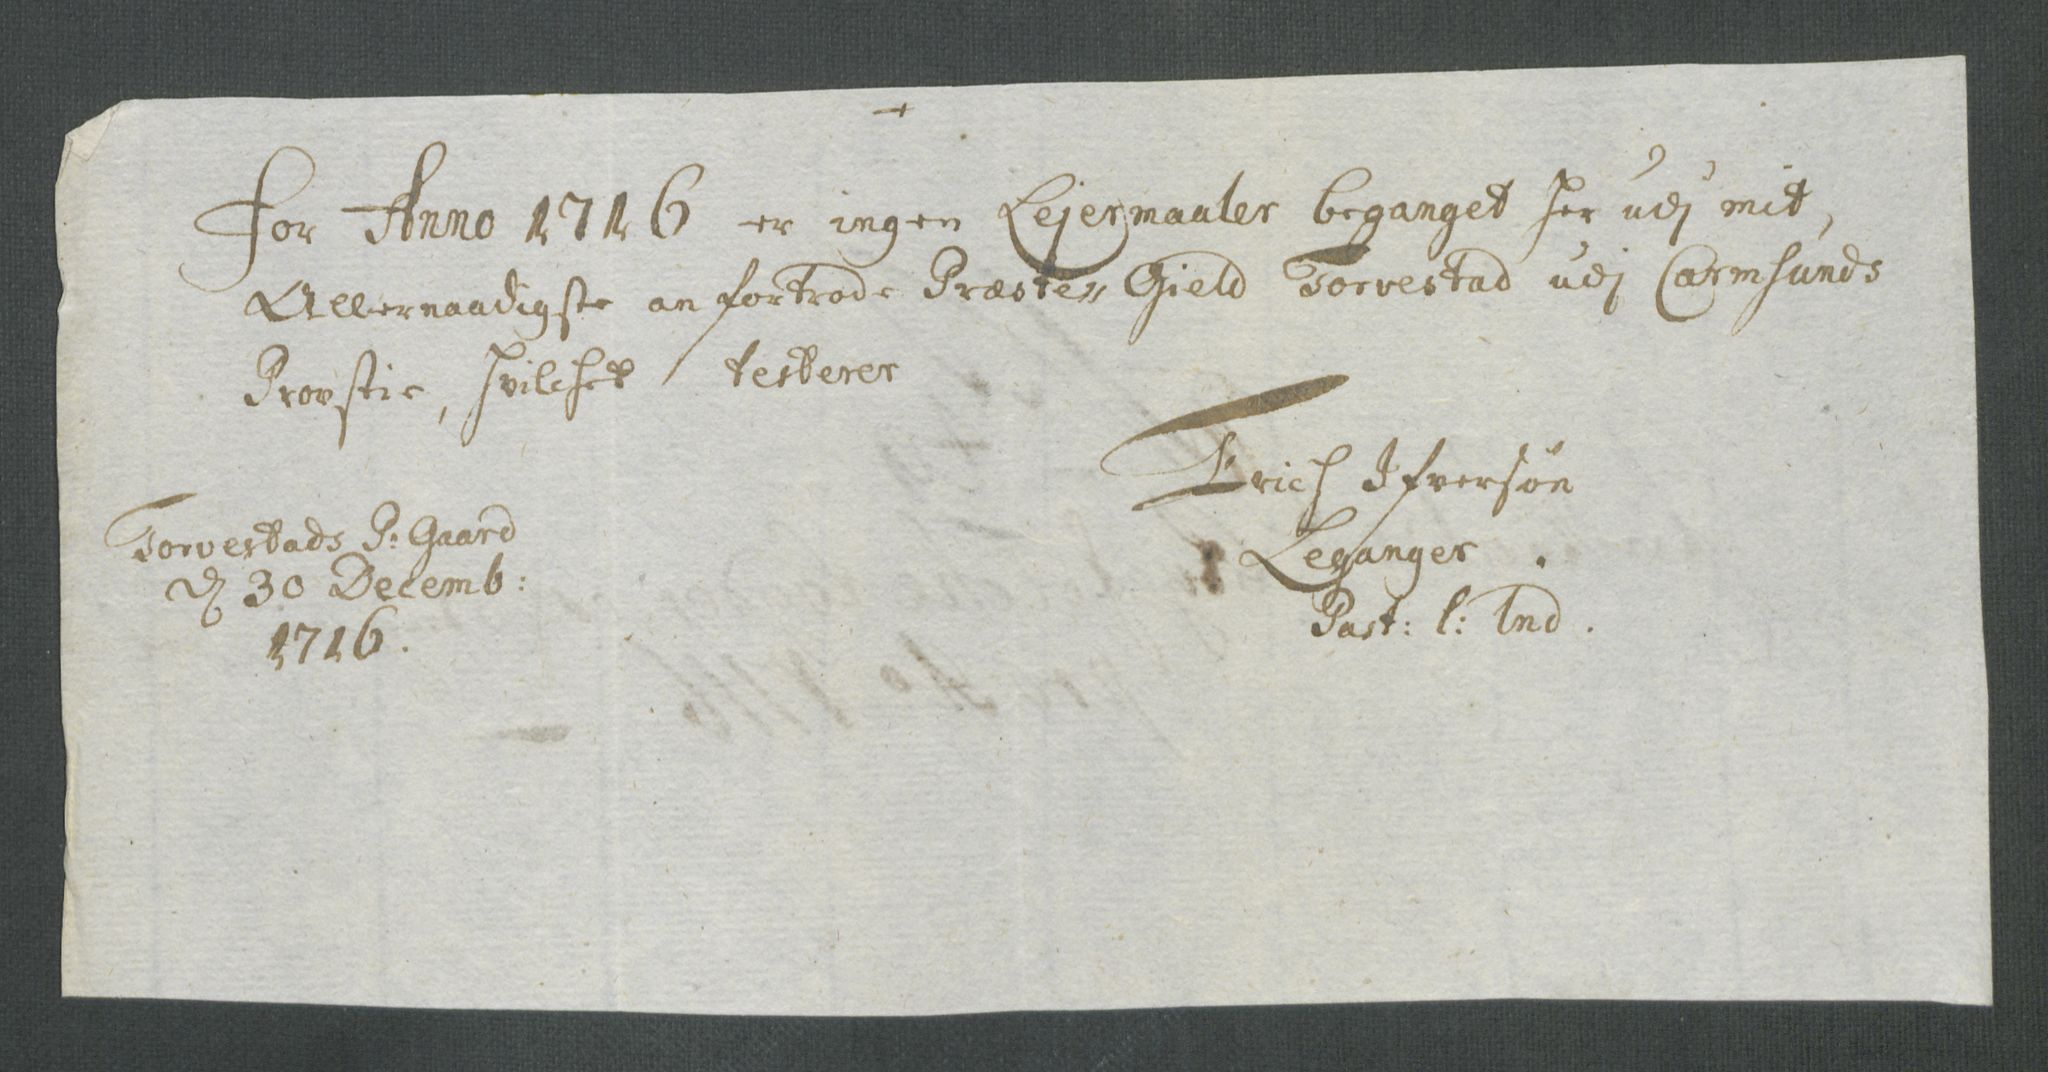 For Anno 1716 er ingen Lejermaaler beganget her udj mit,
Allernaadigste anfortrode Præste" Gield Torvestad udj Carmsunds
Provstie, hvilchet testerer
Erich Ifversøn
Leganger.
Past: l: Ind.
Torvestads P: Gaard
d 30 Decemb:
1716.